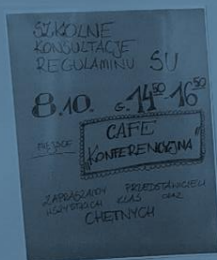 SZKOLNE
KONSULTACJE
REGULAMINU SU
8.10. G. 14⁵⁰-16⁵⁰
MIEJSCE CAFE
"KONFERENCYJNA"
ZAPRASZAMY PRZEDSTAWICIELI
WSZYSTKICH KLAS ORAZ
CHĘTNYCH